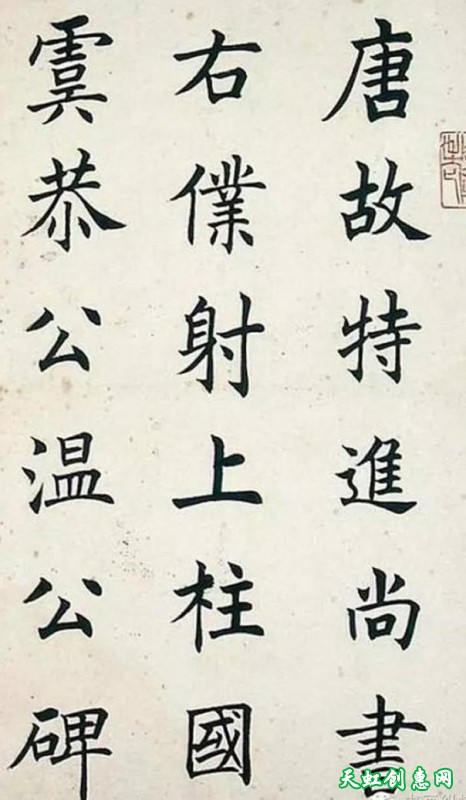 唐故特進尚書
右僕射上柱國
虞恭公温公碑
天虹创惠网